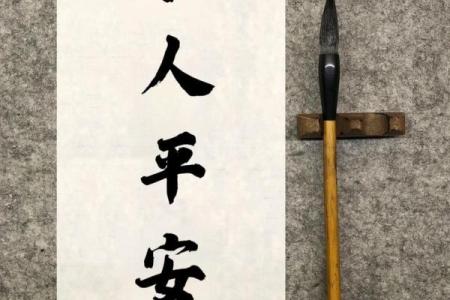 人平安